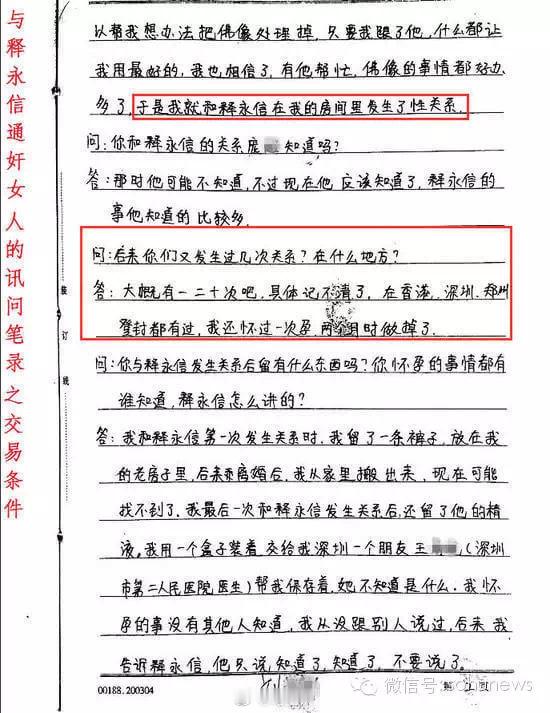 与释永信通奸女人的讯问笔录之交易条件
以帮我想办法把佛像处理掉,只要我跟了他,什么都让
我用最好的,我也相信了,有他帮忙,佛像的事情都好办
多了,于是我就和释永信在我的房间里发生了性关系.
问:你和释永信的关系庞 知道吗?
答:那时他可能不知道,不过现在他应该知道了,释永信的
事他知道的比较多.
问:后来你们又发生过几次关系?在什么地方?
答:大概有一二十次吧,具体记不清了,在香港、深圳、郑州
登封都有过,我还怀过一次孕,两个月时做掉了.
问:你与释永信发生关系后留有什么东西吗?你怀孕的事情都有
谁知道,释永信怎么讲的?
答:我和释永信第一次发生关系时,我留了一条裤子,放在我
的老房子里,后来 离婚后,我从家里搬出来,现在可能
找不到了,我最后一次和释永信发生关系后,还留了他的精
液,我用一个盒子装着,交给我深圳一个朋友王 (深圳
市第二人民医院医生)帮我保存着,她不知道是什么.我怀
孕的事没有其他人知道,我从没跟别人说过,后来我
告诉释永信,他只说知道了,知道了,不要说了.
装
订
线
00188.200304
第 页
微信号: